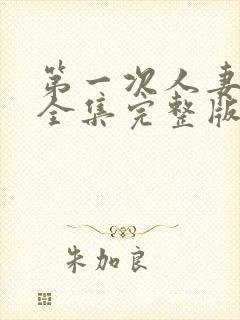 第一次人妻
全集完整版
朱加良